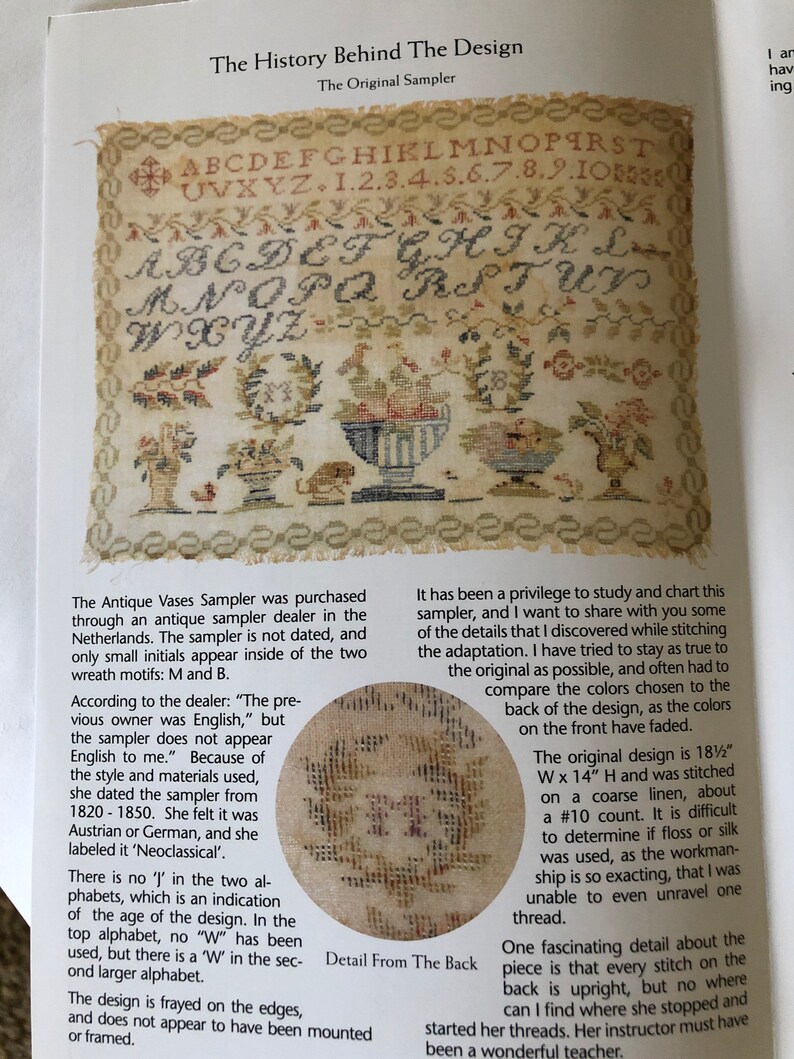 The History Behind The Design
The Original Sampler
ABCDEFGHIKLMNOPQRST
UVXYZ.1.2.3.4.5.6.7.8.9.10
ABCDEFGHIKL
MNOPQRSTUV
WXYZ
M
B
The Antique Vases Sampler was purchased
through an antique sampler dealer in the
Netherlands. The sampler is not dated, and
only small initials appear inside of the two
wreath motifs: M and B.
According to the dealer: “The pre-
vious owner was English,” but
the sampler does not appear
English to me.” Because of
the style and materials used,
she dated the sampler from
1820 - 1850. She felt it was
Austrian or German, and she
labeled it ‘Neoclassical’.
There is no ‘J’ in the two al-
phabets, which is an indication
of the age of the design. In the
top alphabet, no “W” has been
used, but there is a ‘W’ in the sec-
ond larger alphabet.
The design is frayed on the edges,
and does not appear to have been mounted
or framed.
M
Detail From The Back
It has been a privilege to study and chart this
sampler, and I want to share with you some
of the details that I discovered while stitching
the adaptation. I have tried to stay as true to
the original as possible, and often had to
compare the colors chosen to the
back of the design, as the colors
on the front have faded.
The original design is 18½”
W x 14” H and was stitched
on a coarse linen, about
a #10 count. It is difficult
to determine if floss or silk
was used, as the workman-
ship is so exacting, that I was
unable to even unravel one
thread.
One fascinating detail about the
piece is that every stitch on the
back is upright, but no where
can I find where she stopped and
started her threads. Her instructor must have
been a wonderful teacher.
I
ing